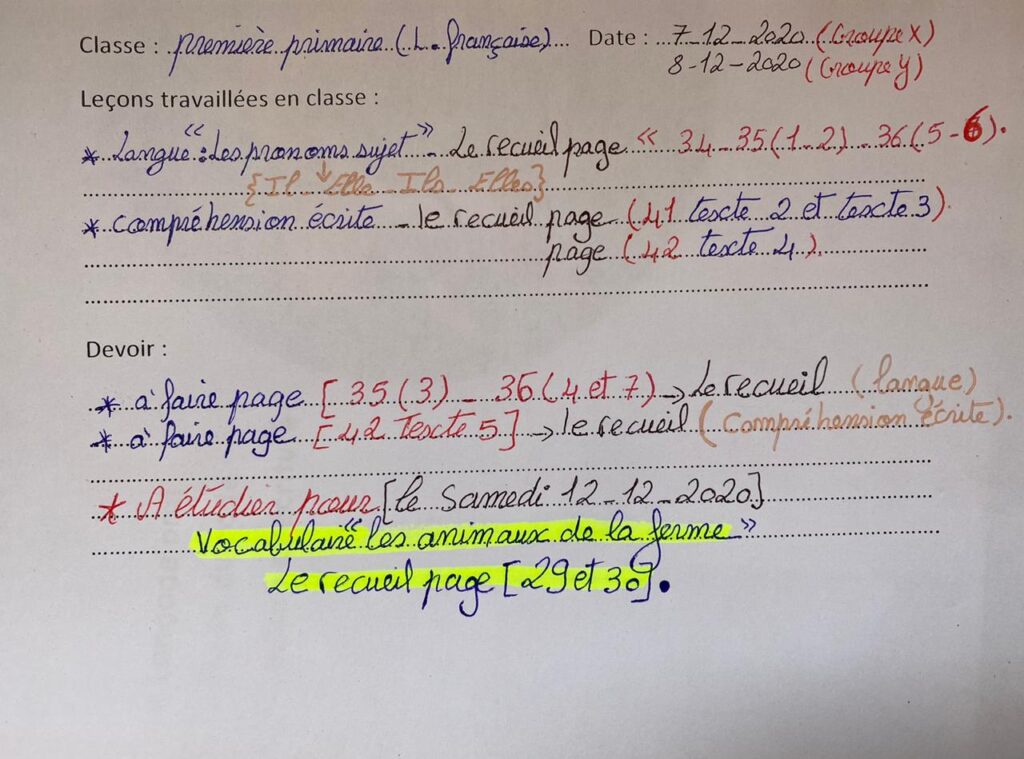 Classe : première primaire (L. française) Date : 7-12-2020 (Groupe X)
8-12-2020 (Groupe Y)
Leçons travaillées en classe :
* Langue : "Les pronoms sujet" - Le recueil page « 34 - 35 (1-2) - 36 (5-6).
{Il - Elle - Ils - Elles}
* Compréhension écrite - le recueil page (41 texte 2 et texte 3)
page (42 texte 4).
Devoir :
* à faire page [35 (3) - 36 (4 et 7) → Le recueil (langue)
* à faire page [42 Texte 5] → le recueil (Compréhension Écrite).
* A étudier pour [le Samedi 12-12-2020]
Vocabulaire "les animaux de la ferme"
Le recueil page [29 et 30].